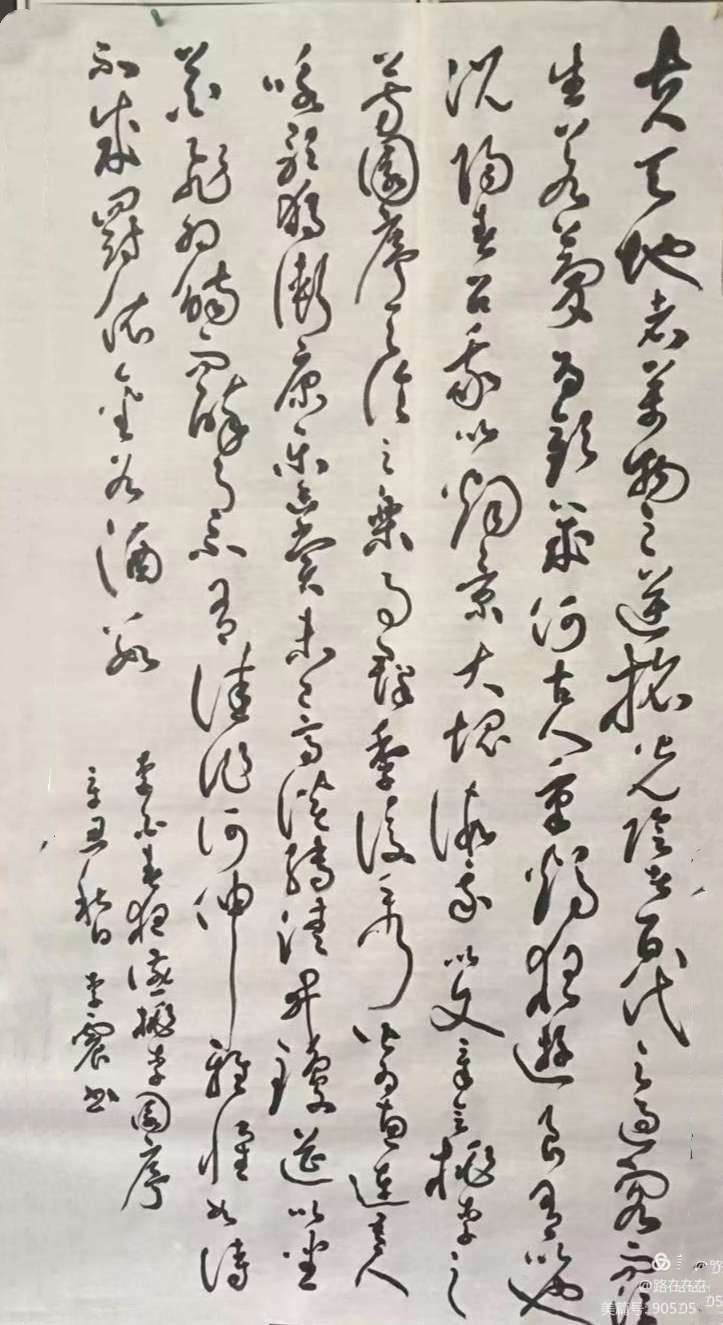 夫天地者萬物之逆旅光陰者百代之過客而浮
生若夢為歡幾何古人秉燭夜遊良有以也
況陽春召我以煙景大塊假我以文章會桃李之
芳園序天倫之樂事群季俊秀皆為惠連吾人
詠歌獨慚康樂幽賞未已高談轉清開瓊筵以坐
花飛羽觴而醉月不有佳作何伸雅懷如詩
不成罰依金谷酒數
李白春夜讌桃李園序
辛丑秋日 李震書
@路在在在
美篇号